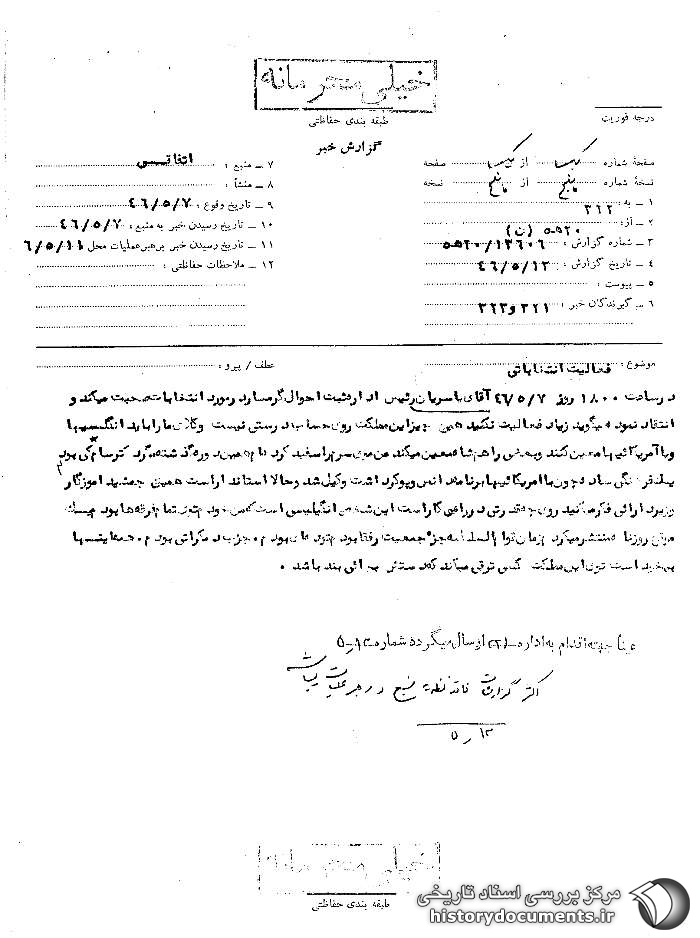 خیلی محرمانه
طبقه بندی حفاظتی
درجه فوریت
گزارش خبر
صفحهٔ شماره یک از یک صفحه
نسخهٔ شماره پنج از پنج نسخه
۱ ـ به: ۳۱۲
۲ ـ از: ۵۲۰ (ن)
۳ ـ شماره گزارش: ۵۲۰/۱۲۶۰۶
۴ ـ تاریخ گزارش: ۴۶/۵/۱۲
۵ ـ پیوست:
۶ ـ گیرندگان خبر: ۳۲۱ و ۳۲۳
۷ ـ منبع: اتفاقی
۸ ـ منشأ:
۹ ـ تاریخ وقوع: ۴۶/۵/۷
۱۰ ـ تاریخ رسیدن خبر به منبع: ۴۶/۵/۷
۱۱ ـ تاریخ رسیدن خبر برهبر عملیات محل ۶/۵/۱۱
۱۲ ـ ملاحظات حفاظتی:
موضوع: فعالیت انتخاباتی
عطف / پیرو:
در ساعت ۱۸۰۰ روز ۴۶/۵/۷ آقای یاسریان رئیس اداره ثبت احوال گرمسار در مورد انتخابات صحبت میکند و
انتقاد نمود میگوید زیاد فعالیت نکنید همین چیز این مملکت روی حساب درستی نیست وکلای ما را باید انگلیسیها
و یا آمریکائیها معین کنند و بعضی را هم شاه معین میکند من موی سرم را سفید کرده‌ام همین دوره گذشته دکتر سامی که بود
یکنفر فرهنگی ساده چون با امریکائیها برنامه داشت وکیل شد و حالا استاندار است همین جمشید اموزگار
وزیر دارائی فکر میکنید روی چه قدرتی در وزراعی کار است این شخص انگلیسی است که من خودم توی تمام فرقه‌ها بودم
روزنامه منتشر میکرد زمان قوام السلطنه جزء جمعیت رفقا بودم توده‌ای بودم، حزب دمکراتی بودم، همه اینها
بی‌خود است توی این مملکت کسی ترقی میکند که دستش بجائی بند باشد.
عیناً جهت اقدام به اداره ۳۲۱ ارسال میگردد شماره ۱۲ـ۵
اکثر گزارشات فاقد نظریه منبع و رهبر عملیات
۱۲ـ۵
خیلی محرمانه
طبقه بندی حفاظتی
مرکز بررسی اسناد تاریخی
historydocuments.ir